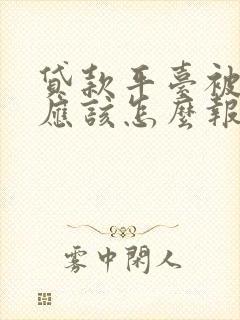 貸款平臺被
應該怎麼報
雾中閑人